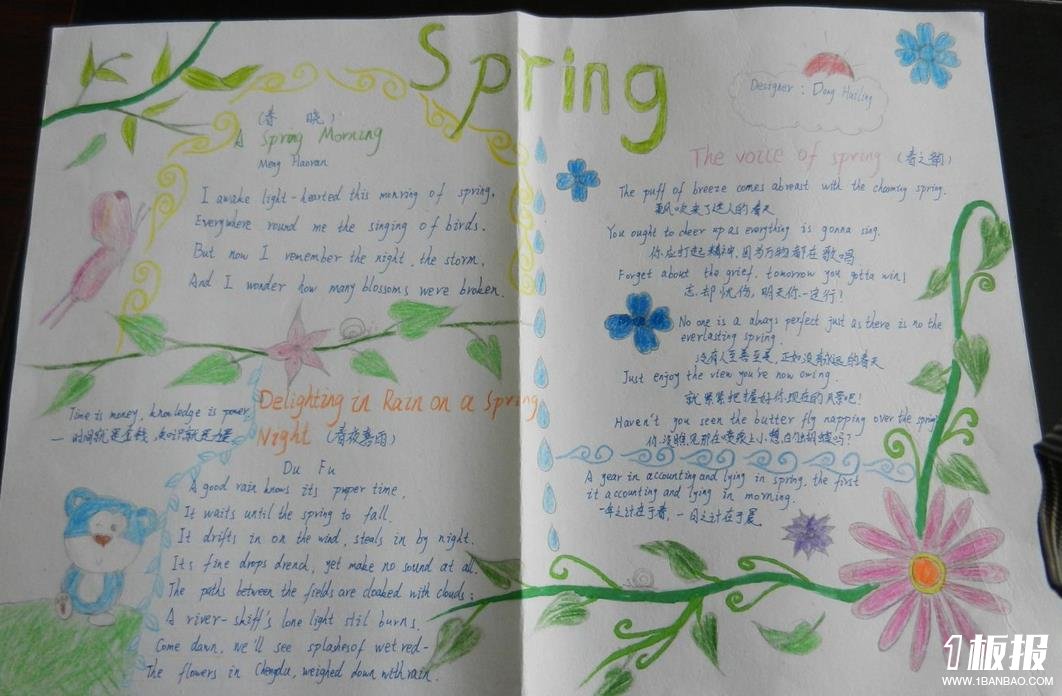 Spring
Designer : Dong Huiling
(春 晓)
A Spring Morning
Meng Haoran
I awake light-hearted this monring of spring,
Everywhere round me the singing of birds.
But now I remember the night, the storm,
And I wonder how many blossoms were broken.
Time is money, knowledge is power
一 时间就是金钱,知识就是力量
Delighting in Rain on a Spring
Night (春夜喜雨)
Du Fu
A good rain knows its puper time,
It waits until the spring to fall.
It drifts in on the wind, steals in by night.
Its fine drops drench, yet make no sound at all.
The paths between the fields are cloaked with clouds;
A river-skiff's lone light still burns.
Come dawn, we'll see splashes of wet red-
The flowers in Chengdu, weighed down with rain.
The voice of spring (春之韵)
The puff of breeze comes abreast with the charming spring.
吹来了迷人的春天
You ought to cheer up as everything is gonna sing.
你应打起精神,因为万物都在歌唱
Forget about the grief, tomorrow you gotta win!
忘却忧伤,明天你一定行!
No one is a always perfect just as there is no the
everlasting spring.
没有人至善至美,正如没有永远的春天
Just enjoy the view you're now owing.
就紧紧把握好你现在的风景吧!
Haven't you seen the butter fly napping over the spring?
你没瞧见那在喷泉上小憩的蝴蝶吗?
A year in accounting and lying in spring, the first
it accounting and lying in morning.
一年之计在于春,一日之计在于晨
1板报
WWW.1BANBAO.COM